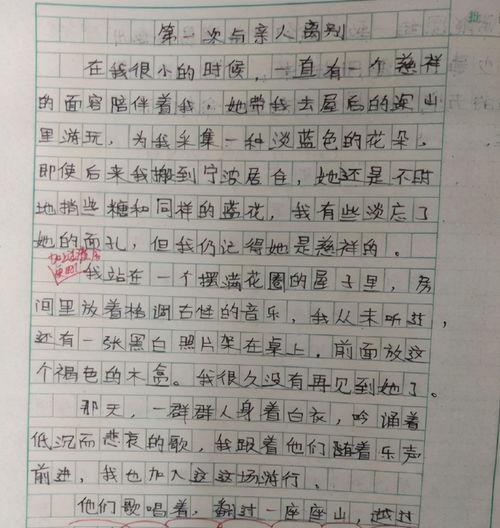 第一次与亲人离别
在我很小的时候，一直有一个慈祥
的面容陪伴着我，她带我去屋后的深山
里游玩，为我采集一种淡蓝色的花朵。
即使后来我搬到宁波居住，她还是不时
地捎些糖和同样的蓝花，我有些淡忘了
她的面孔，但我仍记得她是慈祥的。
我站在一个摆满花圈的屋子里，房
间里放着格调古怪的音乐，我从未听过，
还有一张黑白照片架在桌上，前面放这
个褐色的木盒。我很久没有再见到她了。
那天，一群群人身着白衣，吟诵着
低沉而悲哀的歌，我跟着他们随着乐声
前进，我也加入这这场游行。
他们歌唱着，翻过一座座山，越过